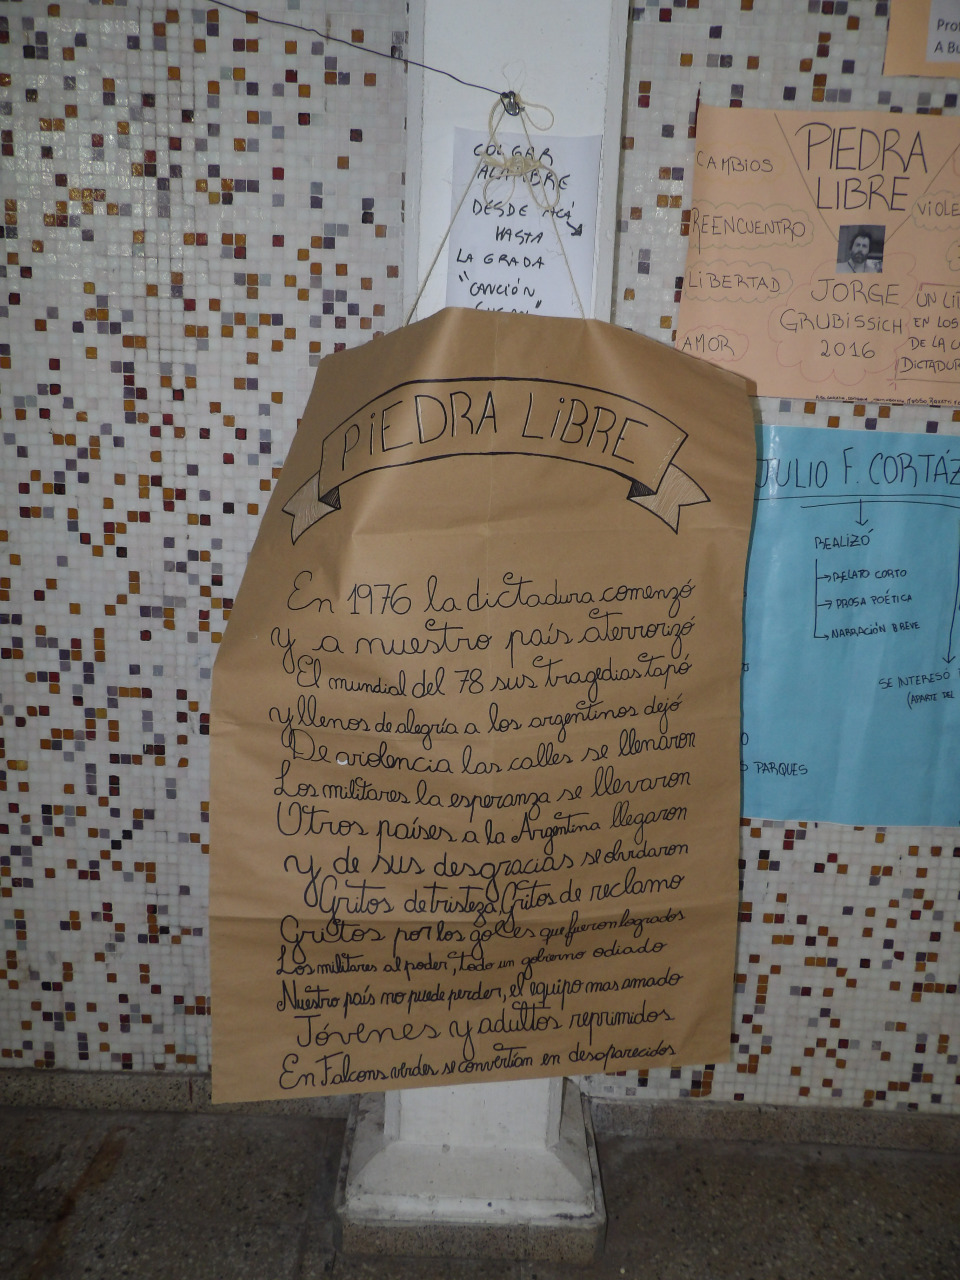 COLGAR
ALAMBRE
DESDE ACÁ
HASTA
LA GRADA
"CANCIÓN
PIEDRA LIBRE
En 1976 la dictadura comenzó
y a nuestro país aterrorizó
El mundial del 78 sus tragedias tapó
y llenos de alegría a los argentinos dejó
De violencia las calles se llenaron
Los militares la esperanza se llevaron
Otros países a la Argentina llegaron
y de sus desgracias se olvidaron
Gritos de tristeza, Gritos de reclamo
Gritos por los goles que fueron logrados
Los militares al poder, todo un gobierno odiado
Nuestro país no puede perder, el equipo mas amado
Jóvenes y adultos reprimidos
En Falcons verdes se convertían en desaparecidos
A BU
PIEDRA
LIBRE
CAMBIOS
REENCUENTRO
LIBERTAD
AMOR
VIOLE
JORGE
GRUBISSICH
2016
UN LI
EN LOS
DE LA
DICTADUR
JULIO F. CORTÁZ
REALIZÓ
RELATO CORTO
PROSA POÉTICA
NARRACIÓN BREVE
SE INTERESÓ
(APARTE DEL
PARQUES